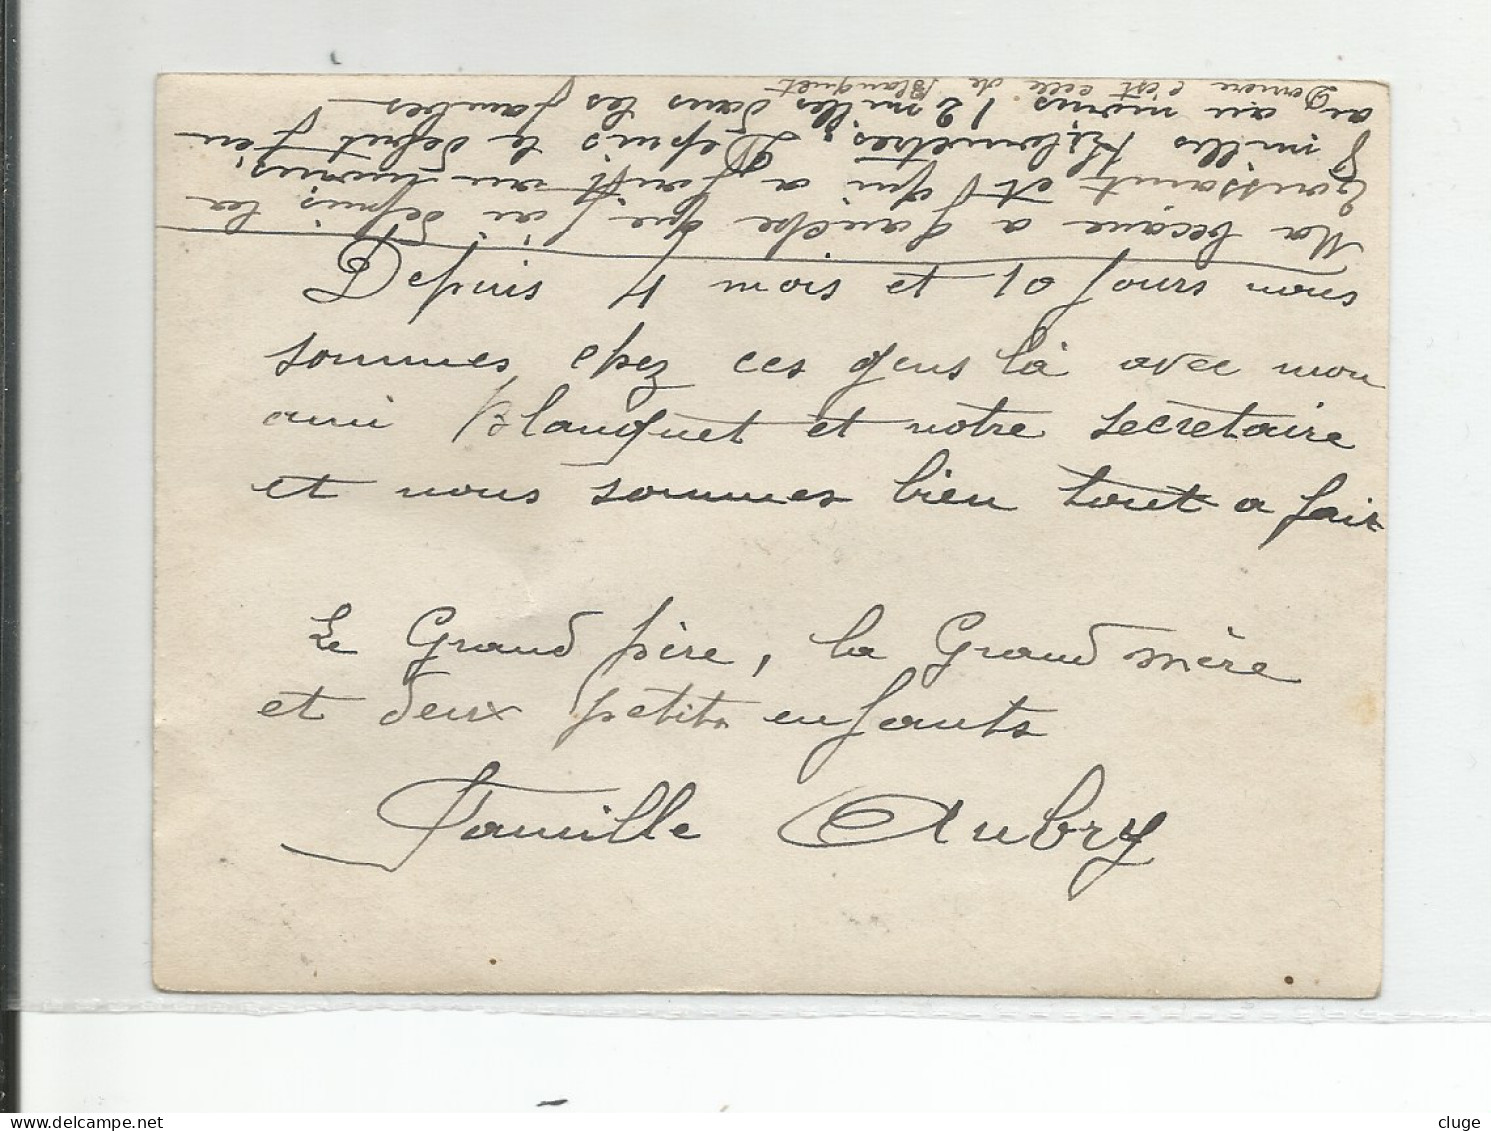 Depuis 4 mois et 10 jours nous
sommes chez ces gens là avec mon
ami Blanquet et notre secretaire
et nous sommes bien tout a fait
Le Grand père, la Grand mère
et deux petits enfants
Famille Aubry
Ma becane a gauche que j'ai depuis la
Toussaint et qui a fait au moins
8 milles Kilomètres. Depuis le debut j'en
ai au moins 12 milles dans les jambes
Derriere c'est celle de
Blanquet
cluge